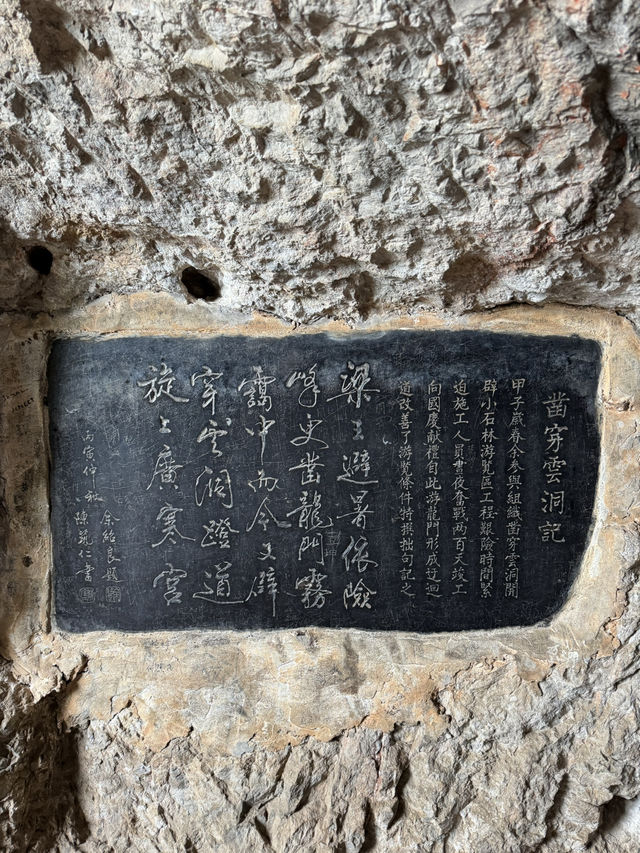 凿穿雲洞記
甲子歲春余參與組織凿穿雲洞開
辟小石林游覽區工程艱險時間緊
迫施工人員晝夜奮戰两百天竣工
向國慶獻禮自此游龍門形成迂迴
道改善了游覽條件特撰拙句記之
梁王避暑依險
峰更凿龍門霧
靄中而今又辟
穿雲洞蹬道
旋上廣寒宫
丙寅仲秋 余紹良題
陳 仁書